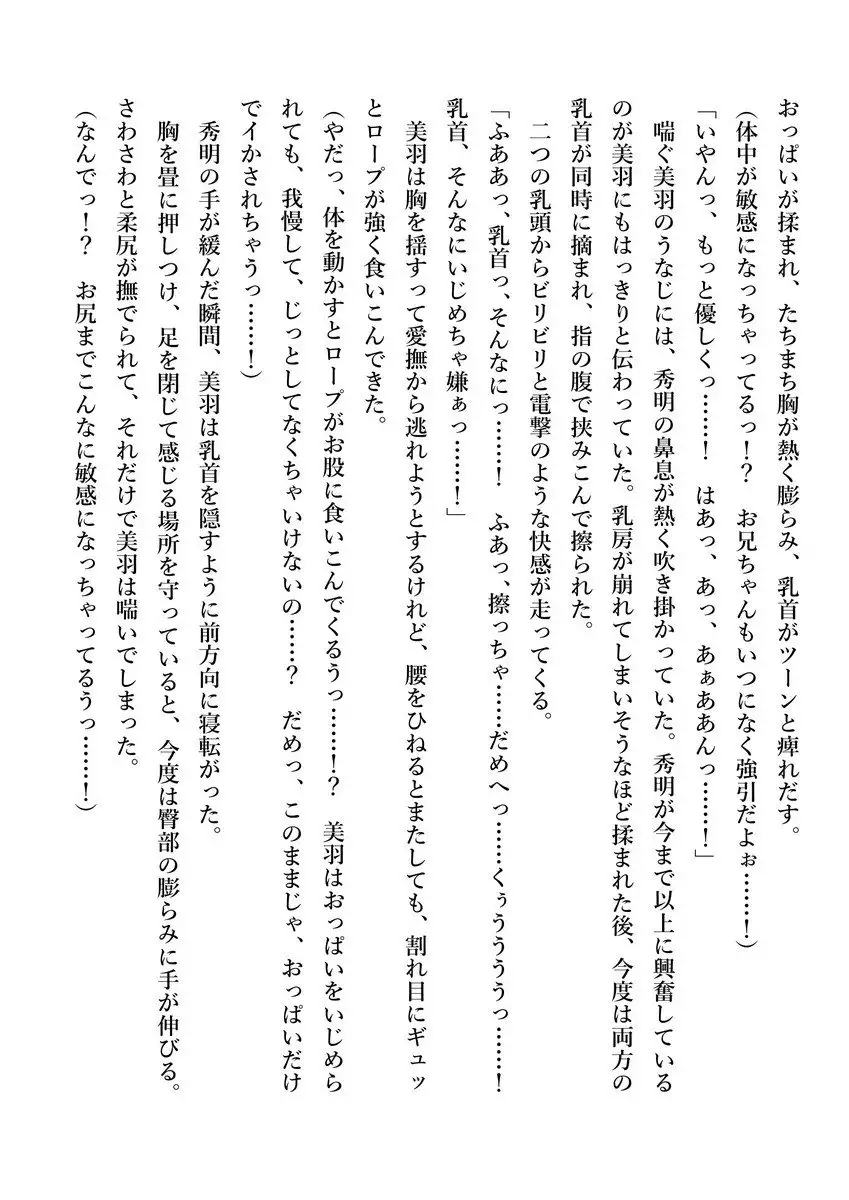 おっぱいが揉まれ、たちまち胸が熱く膨らみ、乳首がツーンと痺れだす。
(体中が敏感になっちゃってるっ！？　お兄ちゃんもいつになく強引だよぉ……！)
「いやんっ、もっと優しくっ……！　はあっ、あっ、あぁああんっ……！」
喘ぐ美羽のうなじには、秀明の鼻息が熱く吹き掛かっていた。秀明が今まで以上に興奮している
のが美羽にもはっきりと伝わっていた。乳房が崩れてしまいそうなほど揉まれた後、今度は両方の
乳首が同時に摘まれ、指の腹で挟みこんで擦られた。
二つの乳頭からビリビリと電撃のような快感が走ってくる。
「ふああっ、乳首っ、そんなにっ……！　ふあっ、擦っちゃ……だめへっ……くぅうううっ……！
乳首、そんなにいじめちゃ嫌ぁっ……！」
美羽は胸を揺すって愛撫から逃れようとするけれど、腰をひねるとまたしても、割れ目にギュッ
とロープが強く食いこんできた。
(やだっ、体を動かすとロープがお股に食いこんでくるうっ……！？　美羽はおっぱいをいじめら
れても、我慢して、じっとしてなくちゃいけないの……？　だめっ、このままじゃ、おっぱいだけ
でイかされちゃうっ……！)
秀明の手が緩んだ瞬間、美羽は乳首を隠すように前方向に寝転がった。
胸を畳に押しつけ、足を閉じて感じる場所を守っていると、今度は臀部の膨らみに手が伸びる。
さわさわと柔尻が撫でられて、それだけで美羽は喘いでしまった。
(なんでっ！？　お尻までこんなに敏感になっちゃってるうっ……！)